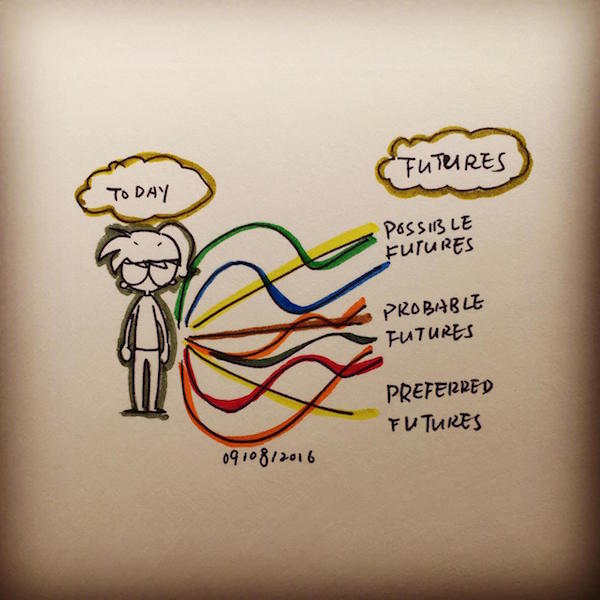 TODAY
FUTURES
POSSIBLE
FUTURES
PROBABLE
FUTURES
PREFERRED
FUTURES
09/08/2016